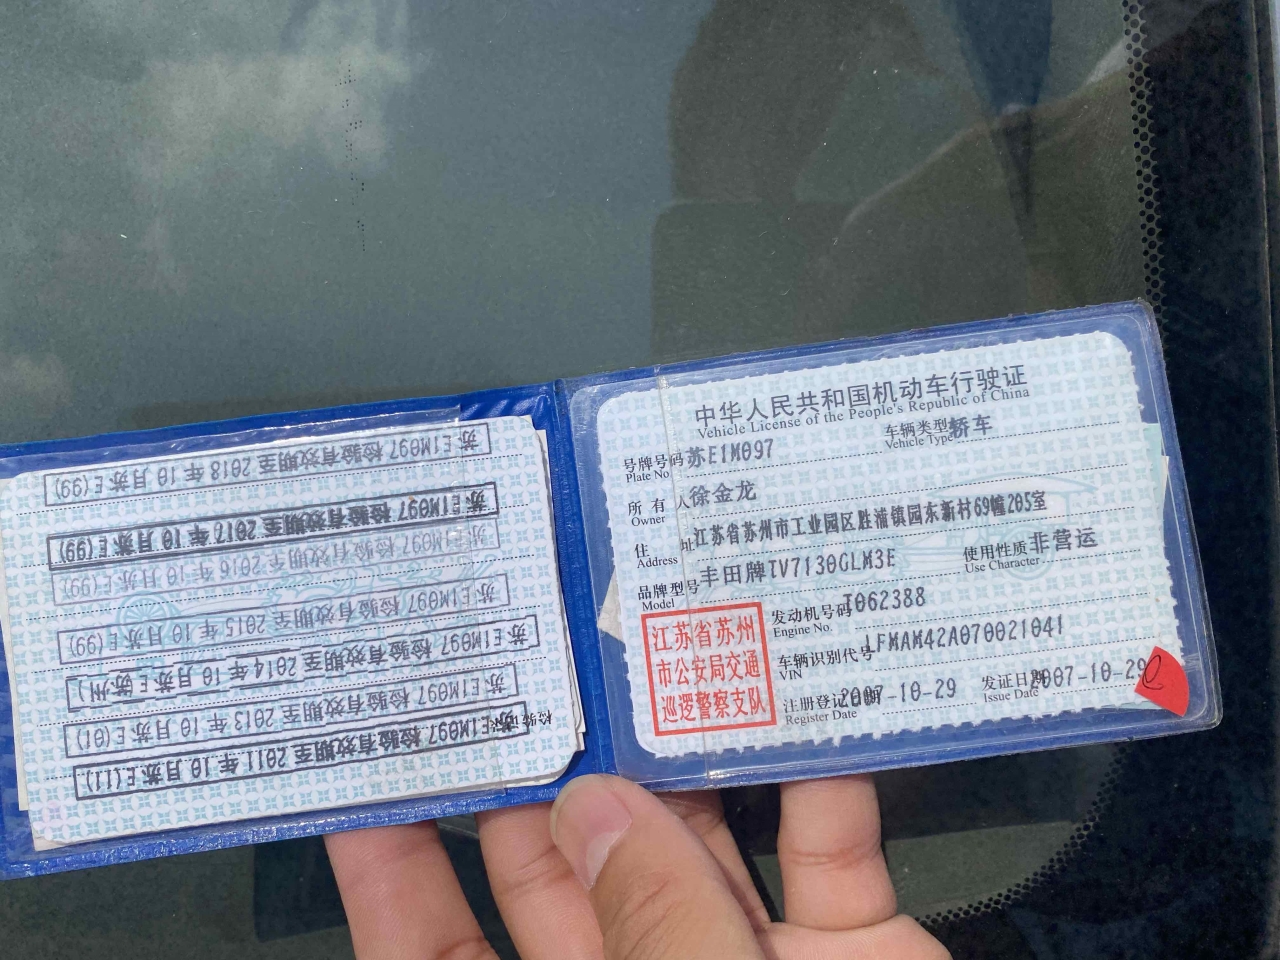 苏E1M097 检验有效期至 2018 年 10 月苏E(99)
苏E1M097 检验有效期至 2017 年 10 月苏E(99)
苏E1M097 检验有效期至 2016 年 10 月苏E(99)
苏E1M097 检验有效期至 2015 年 10 月苏E(99)
苏E1M097 检验有效期至 2014 年 10 月苏E(苏州)
苏E1M097 检验有效期至 2013 年 10 月苏E(01)
苏E1M097 检验有效期至 2011 年 10 月苏E(11)
中华人民共和国机动车行驶证
Vehicle License of the People's Republic of China
号牌号码 苏E1M097 车辆类型 轿车
Plate No. Vehicle Type
所有人 徐金龙
Owner
住址 江苏省苏州市工业园区胜浦镇园东新村69幢205室
Address
品牌型号 丰田牌TV7130GLM3E 使用性质 非营运
Model Use Character
发动机号码 T062388
Engine No.
车辆识别代号 LFMAM42A070021041
VIN
注册登记日期 2007-10-29 发证日期 2007-10-29
Register Date Issue Date
江苏省苏州
市公安局交通
巡逻警察支队